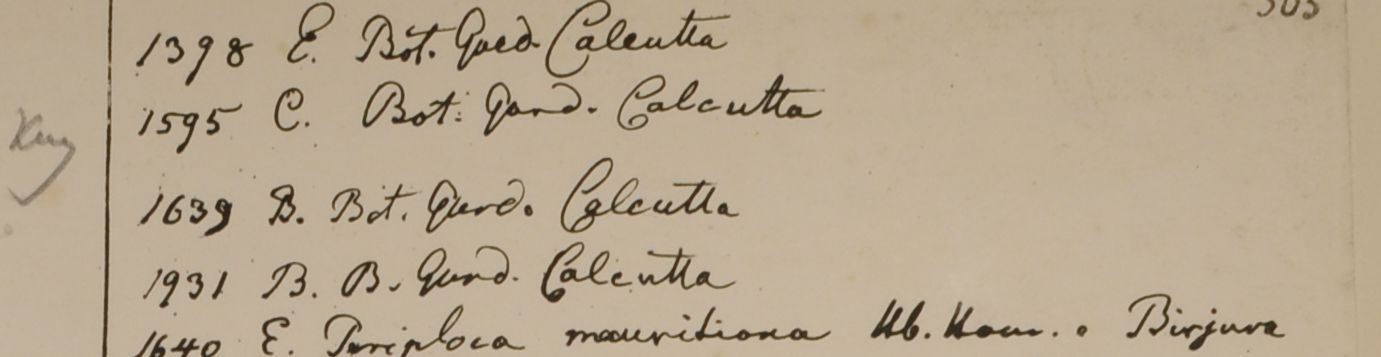 1398 E. Bot. Gard. Calcutta
1595 C. Bot. Gard. Calcutta
1639 B. Bot. Gard. Calcutta
1931 B. B. Gard. Calcutta
1640 E. Periploca mauritiana Hb. Ham. e